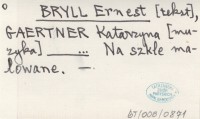 BRYLL Ernest [tekst],
GAERTNER Katarzyna [mu-
zyka] ___ ... Na szkle ma-
lowane. —
6T/006/0871